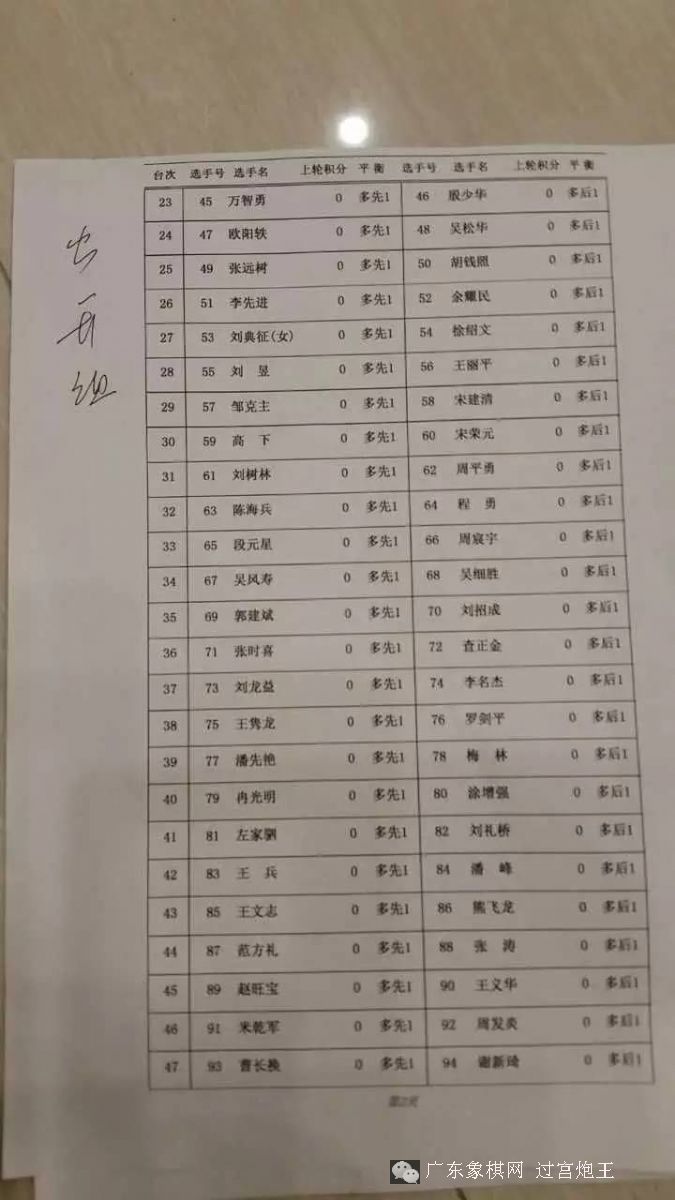 台次 选手号 选手名 上轮积分 平 衡 选手号 选手名 上轮积分 平 衡
23 45 万智勇 0 多先1 46 殷少华 0 多后1
24 47 欧阳轶 0 多先1 48 吴松华 0 多后1
25 49 张远树 0 多先1 50 胡钱照 0 多后1
26 51 李先进 0 多先1 52 余耀民 0 多后1
27 53 刘典征(女) 0 多先1 54 徐绍文 0 多后1
28 55 刘 昱 0 多先1 56 王丽平 0 多后1
29 57 邹克主 0 多先1 58 宋建清 0 多后1
30 59 高 下 0 多先1 60 宋荣元 0 多后1
31 61 刘树林 0 多先1 62 周平勇 0 多后1
32 63 陈海兵 0 多先1 64 程 勇 0 多后1
33 65 段元星 0 多先1 66 周宸宇 0 多后1
34 67 吴风寿 0 多先1 68 吴细胜 0 多后1
35 69 郭建斌 0 多先1 70 刘招成 0 多后1
36 71 张时喜 0 多先1 72 查正金 0 多后1
37 73 刘龙益 0 多先1 74 李名杰 0 多后1
38 75 王隽龙 0 多先1 76 罗剑平 0 多后1
39 77 潘先艳 0 多先1 78 梅 林 0 多后1
40 79 冉光明 0 多先1 80 涂增强 0 多后1
41 81 左家驷 0 多先1 82 刘礼桥 0 多后1
42 83 王 兵 0 多先1 84 潘 峰 0 多后1
43 85 王文志 0 多先1 86 熊飞龙 0 多后1
44 87 范方礼 0 多先1 88 张 涛 0 多后1
45 89 赵旺宝 0 多先1 90 王义华 0 多后1
46 91 米乾军 0 多先1 92 周发炎 0 多后1
47 93 曹长换 0 多先1 94 谢新琦 0 多后1
第2页
广东象棋网 过宫炮王